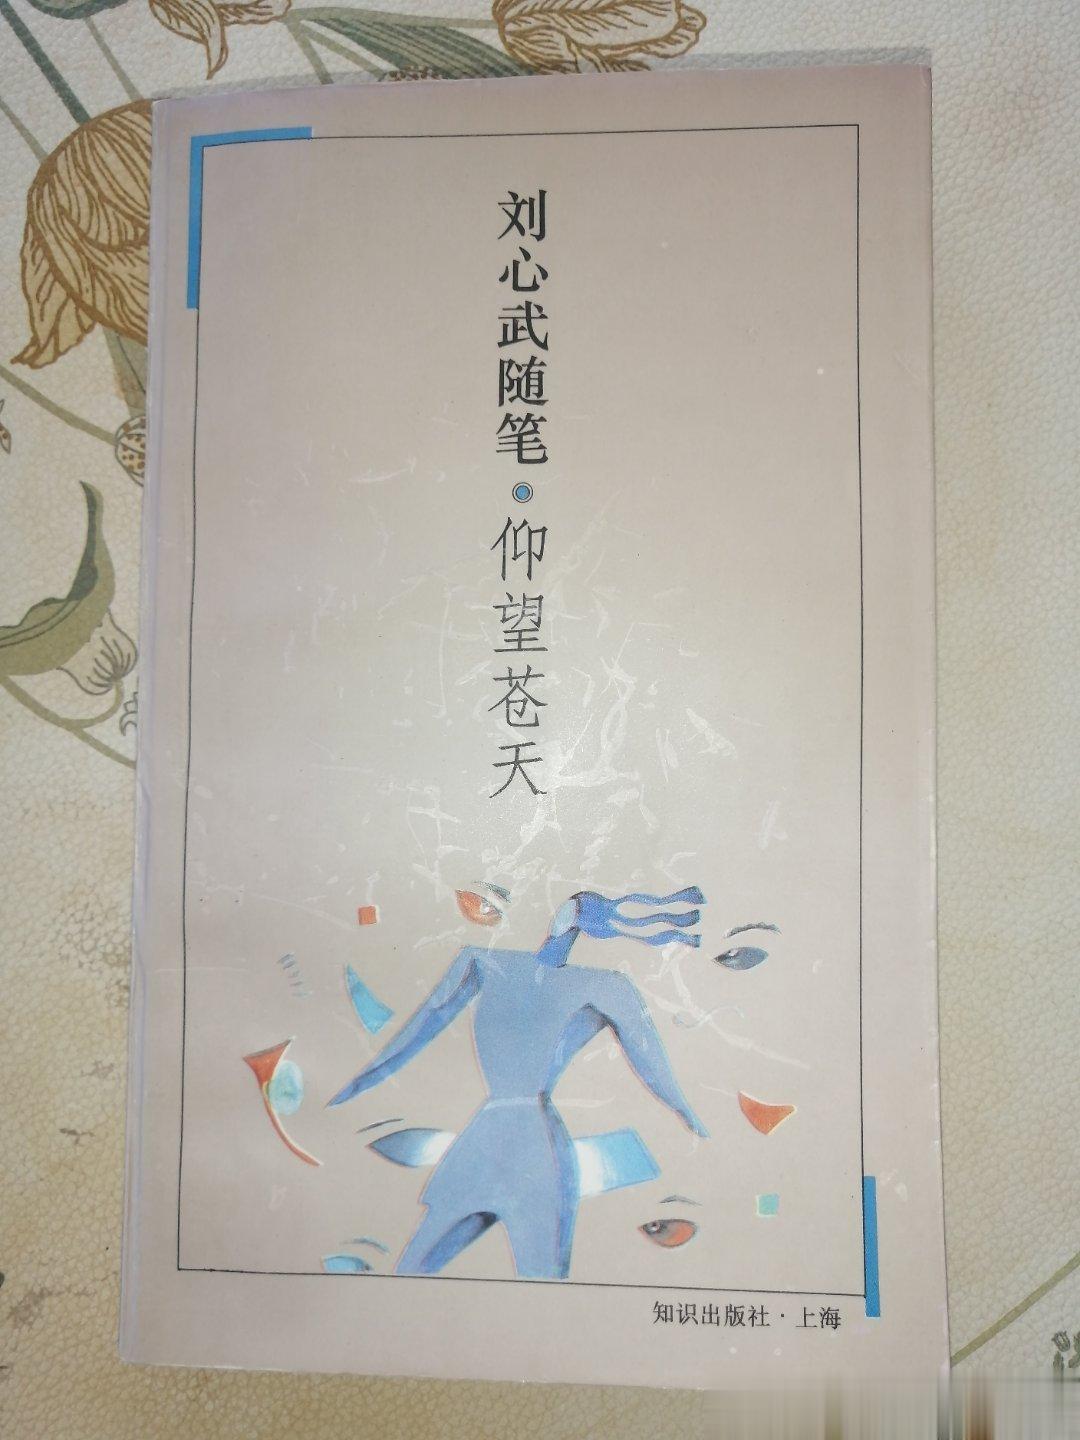 刘心武随笔·仰望苍天
知识出版社·上海